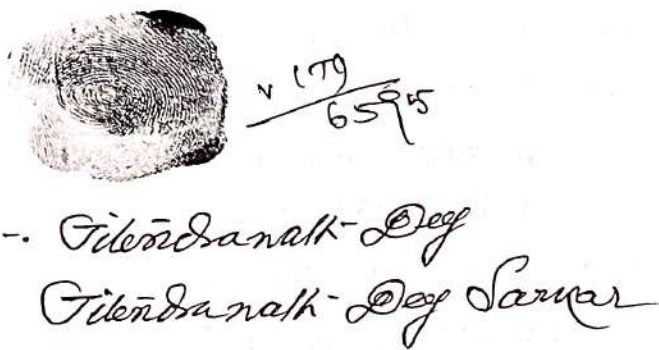 v (T)
6595
-. Jitendranath- Dey
Jitendranath- Dey Sarkar